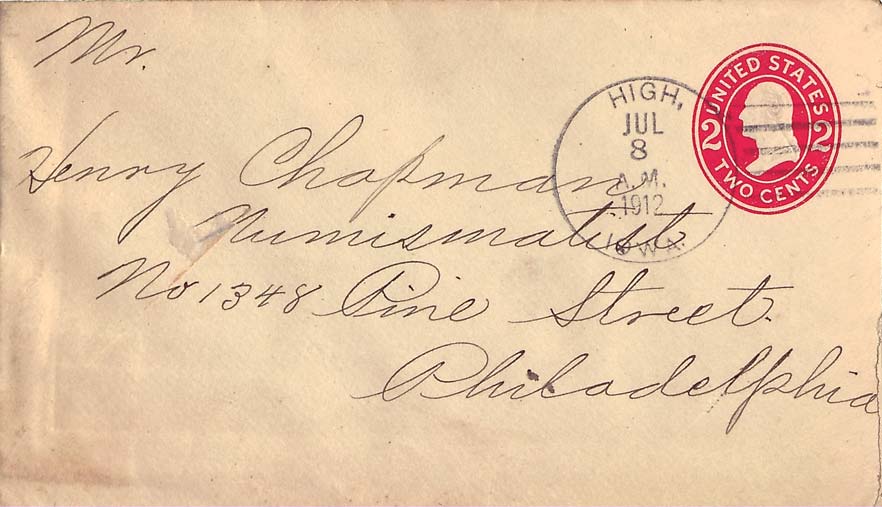 Mr.
Henry Chapman
Numismatist
No 1348 Pine Street.
Philadelphia
HIGH,
JUL
8
A.M.
1912
IOWA.
UNITED STATES
2 2
TWO CENTS